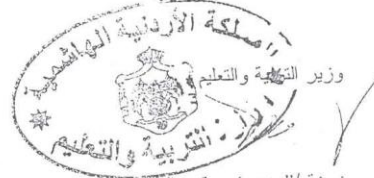 المملكة الأردنية الهاشمية
وزير التربية والتعليم
وزارة التربية والتعليم